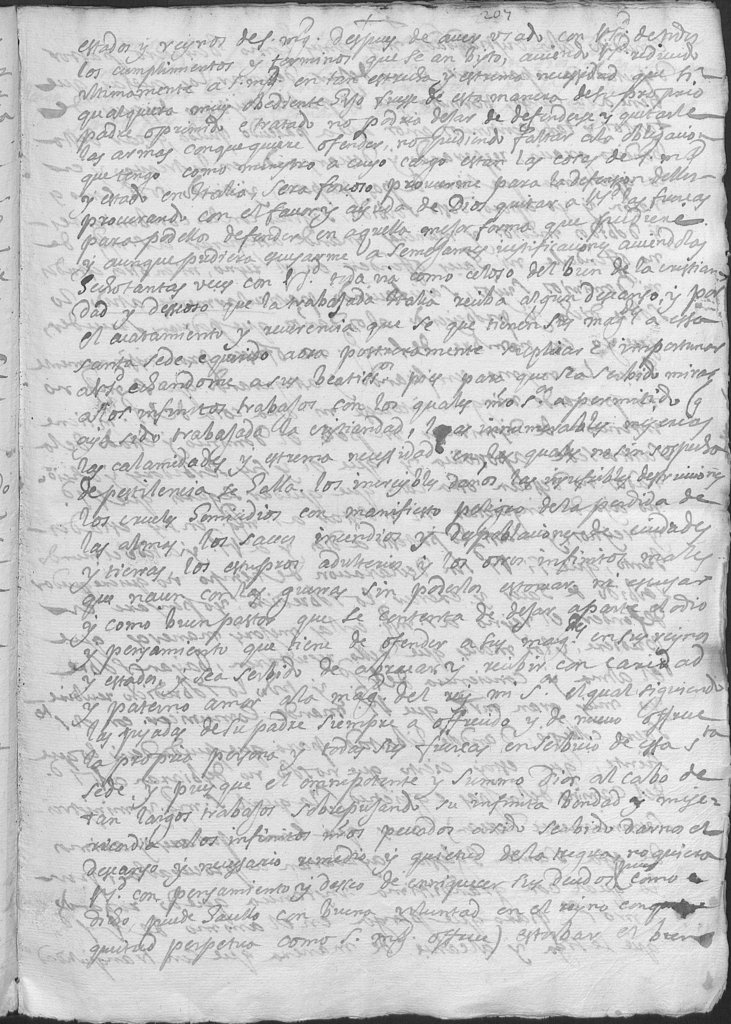 207
estados y reynos de s. mg. despues de aver usado con V. Sd. de todos
los cumplimientos y terminos que se an visto, aviendo V. Sd. reducido
ultimamente a s. mg. en tan estrecha y estrema necessidad que si
qualquiera muy obediente hijo fuesse de esta manera de su proprio
padre oprimido e tratado no podria dexar de defenderse y quitarle
las armas con que quiere ofender, no pudiendo faltar a la obligacion
que tengo como ministro a cuyo cargo estan las cosas de s. mg.
y estado en Italia sera forçoso procurarme para la defension dellos
procurando con el favor y ayuda de Dios quitar a V. Sd. las fuerças
para podellos defender en aquella mejor forma que pudiere
y aunque pudiera escusarme a semejantes justificaciones aviendolas
hecho tantas veces con V. Sd. toda via como celoso del bien de la cristian
dad y deseoso que la trabajada Italia reciba algun descanso, y por
el acatamiento y reverencia que se que tienen sus mag.s a essa
santa sede e querido aora postreramente suplicar e importunar
a V. Sd. echandome a sus pies para que sea servido mirar
a los infinitos trabajos con los quales nro Sr. a permitido q
aya sido trabajada la cristiandad, las innumerables
las calamidades y estrema necessidad en las quales no sin sospecha
de pestilencia se halla. los increybles daños, las destruiciones
los crueles homicidios con manifiesto peligro de la perdida de
las almas, los sacos incendios y despoblaciones de ciudades
y tierras, los estupros adulterios y los otros infinitos males
que nacen con las guerras sin poderlos estorvar ni escusar
y como buen pastor que se contente de dexar aparte el odio
y pensamiento que tiene de ofender a sus mag.des en sus reynos
y estados, y sea servido de abraçar y recibir con caridad
y paterno amor a la mag. del rey mi Sr. el qual siguiendo
las pisadas de su padre siempre a offrecido y de nuevo offrece
la propria persona y todas sus fuerças en servicio de essa sta
sede, y pues que el omnipotente y summo Dios al cabo de
tan largos trabajos sobrepujando su infinita bondad y mise-
ricordia a los infinitos nros pecados a sido servido darnos el
descanso y necessario remedio y quietud de la tregua no quiera
V. Sd. con pensamiento y deseo de enriquecer sus deudos (como e
dicho puede hacello con buena voluntad en el reyno con
quietud perpetua como s. mg. offrece) estorbar el bien